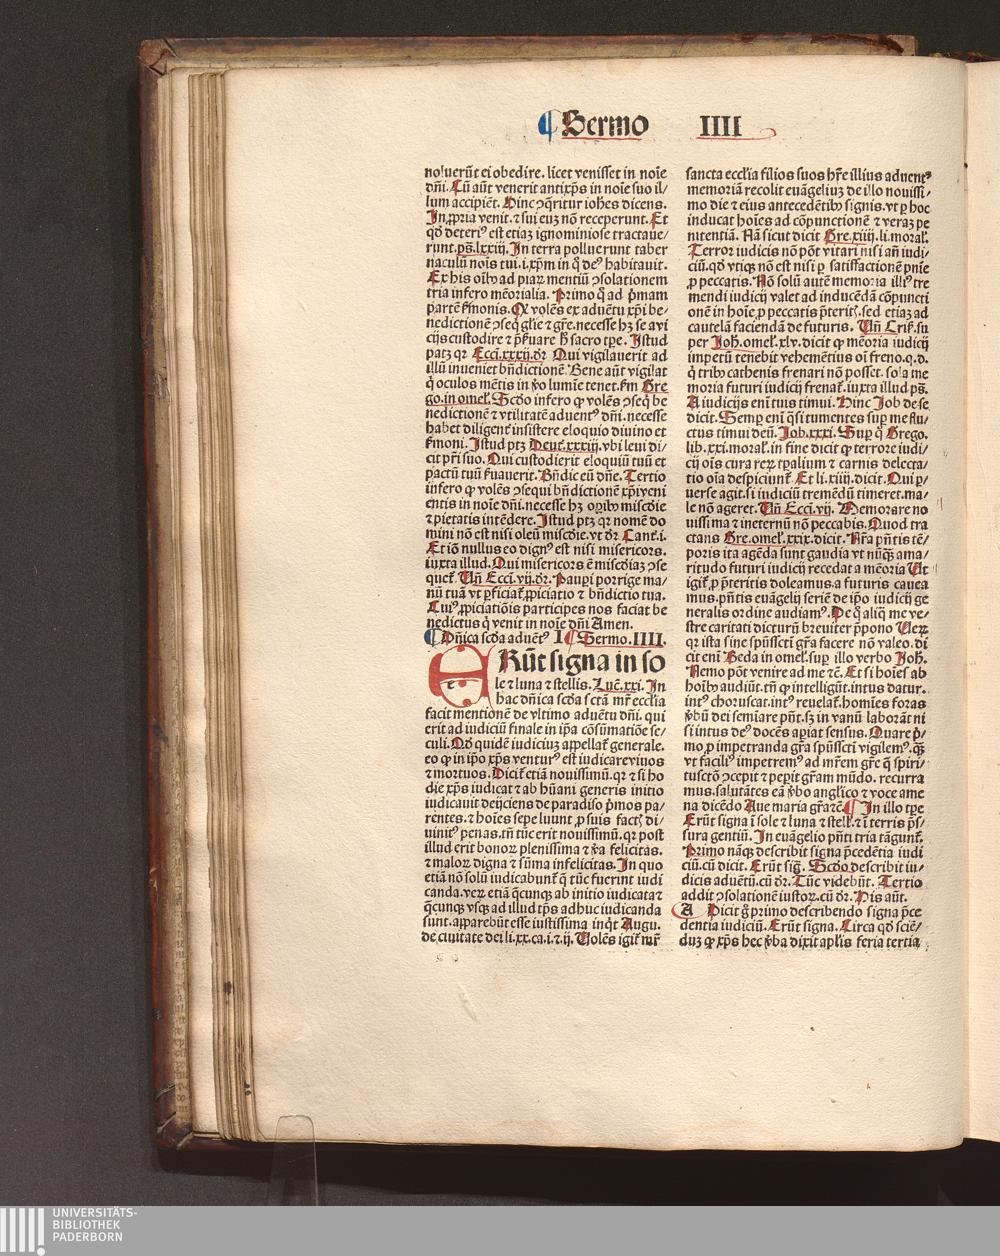 ¶ Sermo IIII
noluerūt ei obedire. licet venisset in noīe
dñi. Cū aūt venerit antixp̄s in noīe suo il/
lum accipiēt. Hinc ↄq̄ritur ioh̄es dicens.
In ꝓpria venit. ⁊ sui euꝫ nō receperunt. Et
qđ deteriꝰ est etiaꝫ ignominiose tractaue/
runt. ps̄. lxxiij. In terra polluerunt taber
naculū noīs tui. i. xp̄m in q̄ deꝰ habitauit.
Ex his oībꝰ ad piaꝝ mentiū ↄsolationem
tria infero mēorialia. Primo q̄ ad p̄mam
partē ẜmonis. Qꝫ volēs ex aduētu xp̄i be/
nedictionē ↄseq̄ gl̄ie ⁊ gr̄e. necesse hꝫ se a vi
cijs custodire ⁊ p̄ẜuare h̄ sacro tꝑe. Istud
patꝫ qꝛ Ecci. xxxij. dꝛ Qui vigilauerit ad
illū inueniet bn̄dictionē Bene aūt vigilat
q̄ oculos mētis in v̄o lumīe tenet. ẜm Gre
go. in omel̄. Scđo infero ꝙ volēs ↄseq̄ be
nedictionē ⁊ vtilitatē aduentꝰ dñi. necesse
habet diligent̄ insistere eloquio diuino et
ẜmoni. Istud ptꝫ Deut̄. xxxiij. vbi leui di/
cit pr̄i suo. Qui custodierit eloquiū tuū et
pactū tuū ẜuauerit. Bn̄dic eū dn̄e. Tertio
infero ꝙ volēs ↄsequi bn̄dictionē xp̄i veni
entis in noīe dñi. necesse hꝫ oꝑibꝰ misc̄die
⁊ pietatis intēdere. Istud ptꝫ qꝛ nomē do
mini nō est nisi oleū misc̄die. vt dꝛ Cant̄. i.
Et iō nullus eo dignꝰ est nisi misericors.
iuxta illud. Qui misericors ē misc̄diaꝫ ↄse
quet̄. Vn̄ Ecci. vij. dꝛ. Pauꝑi porrige ma/
nū tuā vt ꝑficiat̄ ꝓpiciatio ⁊ bn̄dictio tua.
Cuiꝰ ꝓpiciatiōis participes nos faciat be
nedictus q̄ venit in noīe dñi Amen.
¶ Dn̄ica scđa aduētꝰ I ¶ Sermo. IIII.
ERūt signa in so
le ⁊ luna ⁊ stellis. Luc̄. xxi. In
hac dn̄ica scđa sctā mr̄ ecclīa
facit mentionē de vltimo aduētu dñi. qui
erit ad iudiciū finale in ip̄a cōsūmatiōe se/
culi. Qđ quidē iudiciuꝫ appellat̄ generale.
eo ꝙ in ip̄o xp̄s venturꝰ est iudicare viuos
⁊ mortuos. Dicit̄ etiā nouissimū. qꝛ ⁊ si ho
die xp̄s iudicat ⁊ ab hūani generis initio
iudicauit deijciens de paradiso p̄mos pa/
rentes. ⁊ hoīes sepe luunt ꝓ suis fact̄ di/
uinitꝰ penas. tn̄ tūc erit nouissimū. qꝛ post
illud erit bonoꝝ plenissima ⁊ v̄a felicitas.
⁊ maloꝝ digna ⁊ sūma infelicitas. In quo
etiā nō solū iudicabunt̄ q̄ tūc fuerint iudi
canda. veꝝ etiā q̄cunqꝫ ab initio iudicata ⁊
q̄cunqꝫ vsqꝫ ad illud tp̄s adhuc iudicanda
sunt. apparebūt esse iustissima inq̄t Augu.
de ciuitate dei li. xx. ca. i. ⁊ ij. Volēs igit̄ mr̄
sancta eccl̄ia filios suos hr̄e illius aduentꝰ
memoriā recolit euāgeliuꝫ de illo nouissi/
mo die ⁊ eius antecedētibꝰ signis. vt ꝑ hoc
inducat hoīes ad cōpunctionē ⁊ veraꝫ pe
nitentiā. Nā sicut dicit Gre. xiiij. li. moral̄.
Terror iudicis nō pōt vitari nisi añ iudi/
ciū. qđ vtiqꝫ nō est nisi ꝑ satisfactionē pn̄ie
ꝓ peccatis. Nō solū autē memoria illiꝰ tre
mendi iudicij valet ad inducēdā cōpuncti
onē in hoīe ꝓ peccatis p̄terit̄. sed etiaꝫ ad
cautelā faciendā de futuris. Vn̄ Cris. su
per Joh̄. omel̄. xlv. dicit ꝙ mēoria iudicij
impetū tenebit vehemētius oī freno. q. d.
q̄ tribꝰ cathenis frenari nō posset. sola me
moria futuri iudicij frenat̄. iuxta illud ps̄.
A iudicijs enī tuis timui. Hinc Job de se
dicit. Semꝑ enī q̄si tumentes suꝑ me flu/
ctus timui deū. Job. xxxi. Suꝑ q̄ Grego.
lib. xxi. moral̄. in fine dicit ꝙ terrore iudi/
cij oīs cura reꝝ tꝑalium ⁊ carnis delecta/
tio oīa despiciunt̄. Et li. xiiij. dicit. Qui ꝑ/
uerse agit. si iudiciū tremēdū timeret. ma/
le nō ageret. Vn̄ Ecci. vij. Memorare no
uissima ⁊ in eternū nō peccabis. Quod tra
ctans Gre. omel̄. xxix. dicit. Nr̄a pn̄tis tē/
poris ita agēda sunt gaudia vt nūqꝫ ama/
ritudo futuri iudicij recedat a mēoria Vt
igit̄ ꝓ p̄teritis doleamus. a futuris cauea
mus. pn̄tis euāgelij seriē de ip̄o iudicij ge
neralis ordine audiamꝰ. De q̄ aliq̄ me ve/
stre caritati dicturū breuiter p̄pono Veꝝ
qꝛ ista sine spūsscti gr̄a facere nō valeo. di
cit enī Beda in omel̄. suꝑ illo verbo Joh̄.
Nemo pōt venire ad me ⁊c̄. Et si hoīes ab
hoībꝰ audiūt. tn̄ ꝙ intelligūt. intus datur.
intꝰ choruscat. intꝰ reuelat̄. homīes foras
v̄bū dei semiare pn̄t. sꝫ in vanū laborāt ni
si intus deꝰ docēs aꝑiat sensus. Quare p̄/
mo ꝓ impetranda gr̄a spūsscti vigilemꝰ. qꝫ
vt faciliꝰ impetremꝰ ad mr̄em gr̄e q̄ spiri/
tusctō ↄcepit ⁊ peꝑit gr̄am mūdo. recurra
mus. salutātes eā v̄bo angl̄ico ⁊ voce ame
na dicēdo Aue maria gr̄a ⁊c̄. ¶ In illo tꝑe
Erūt signa ī sole ⁊ luna ⁊ stell̄. ⁊ ī terris p̄s/
sura gentiū. In euāgelio pn̄ti tria tāgunt̄.
Primo nāqꝫ describit signa p̄cedētia iudi
ciū. cū dicit. Erūt siḡ. Scđo describit iu/
dicis aduētū. cū dꝛ. Tūc videbūt. Tertio
addit ↄsolationē iustoꝝ. cū dꝛ. His aūt.
A Dicit g̊ primo describendo signa p̄ce
dentia iudiciū. Erūt signa. Circa qđ sciē/
duꝫ ꝙ xp̄s hec v̄ba dixit apl̄is feria tertia
UNIVERSITÄTS-
BIBLIOTHEK
PADERBORN